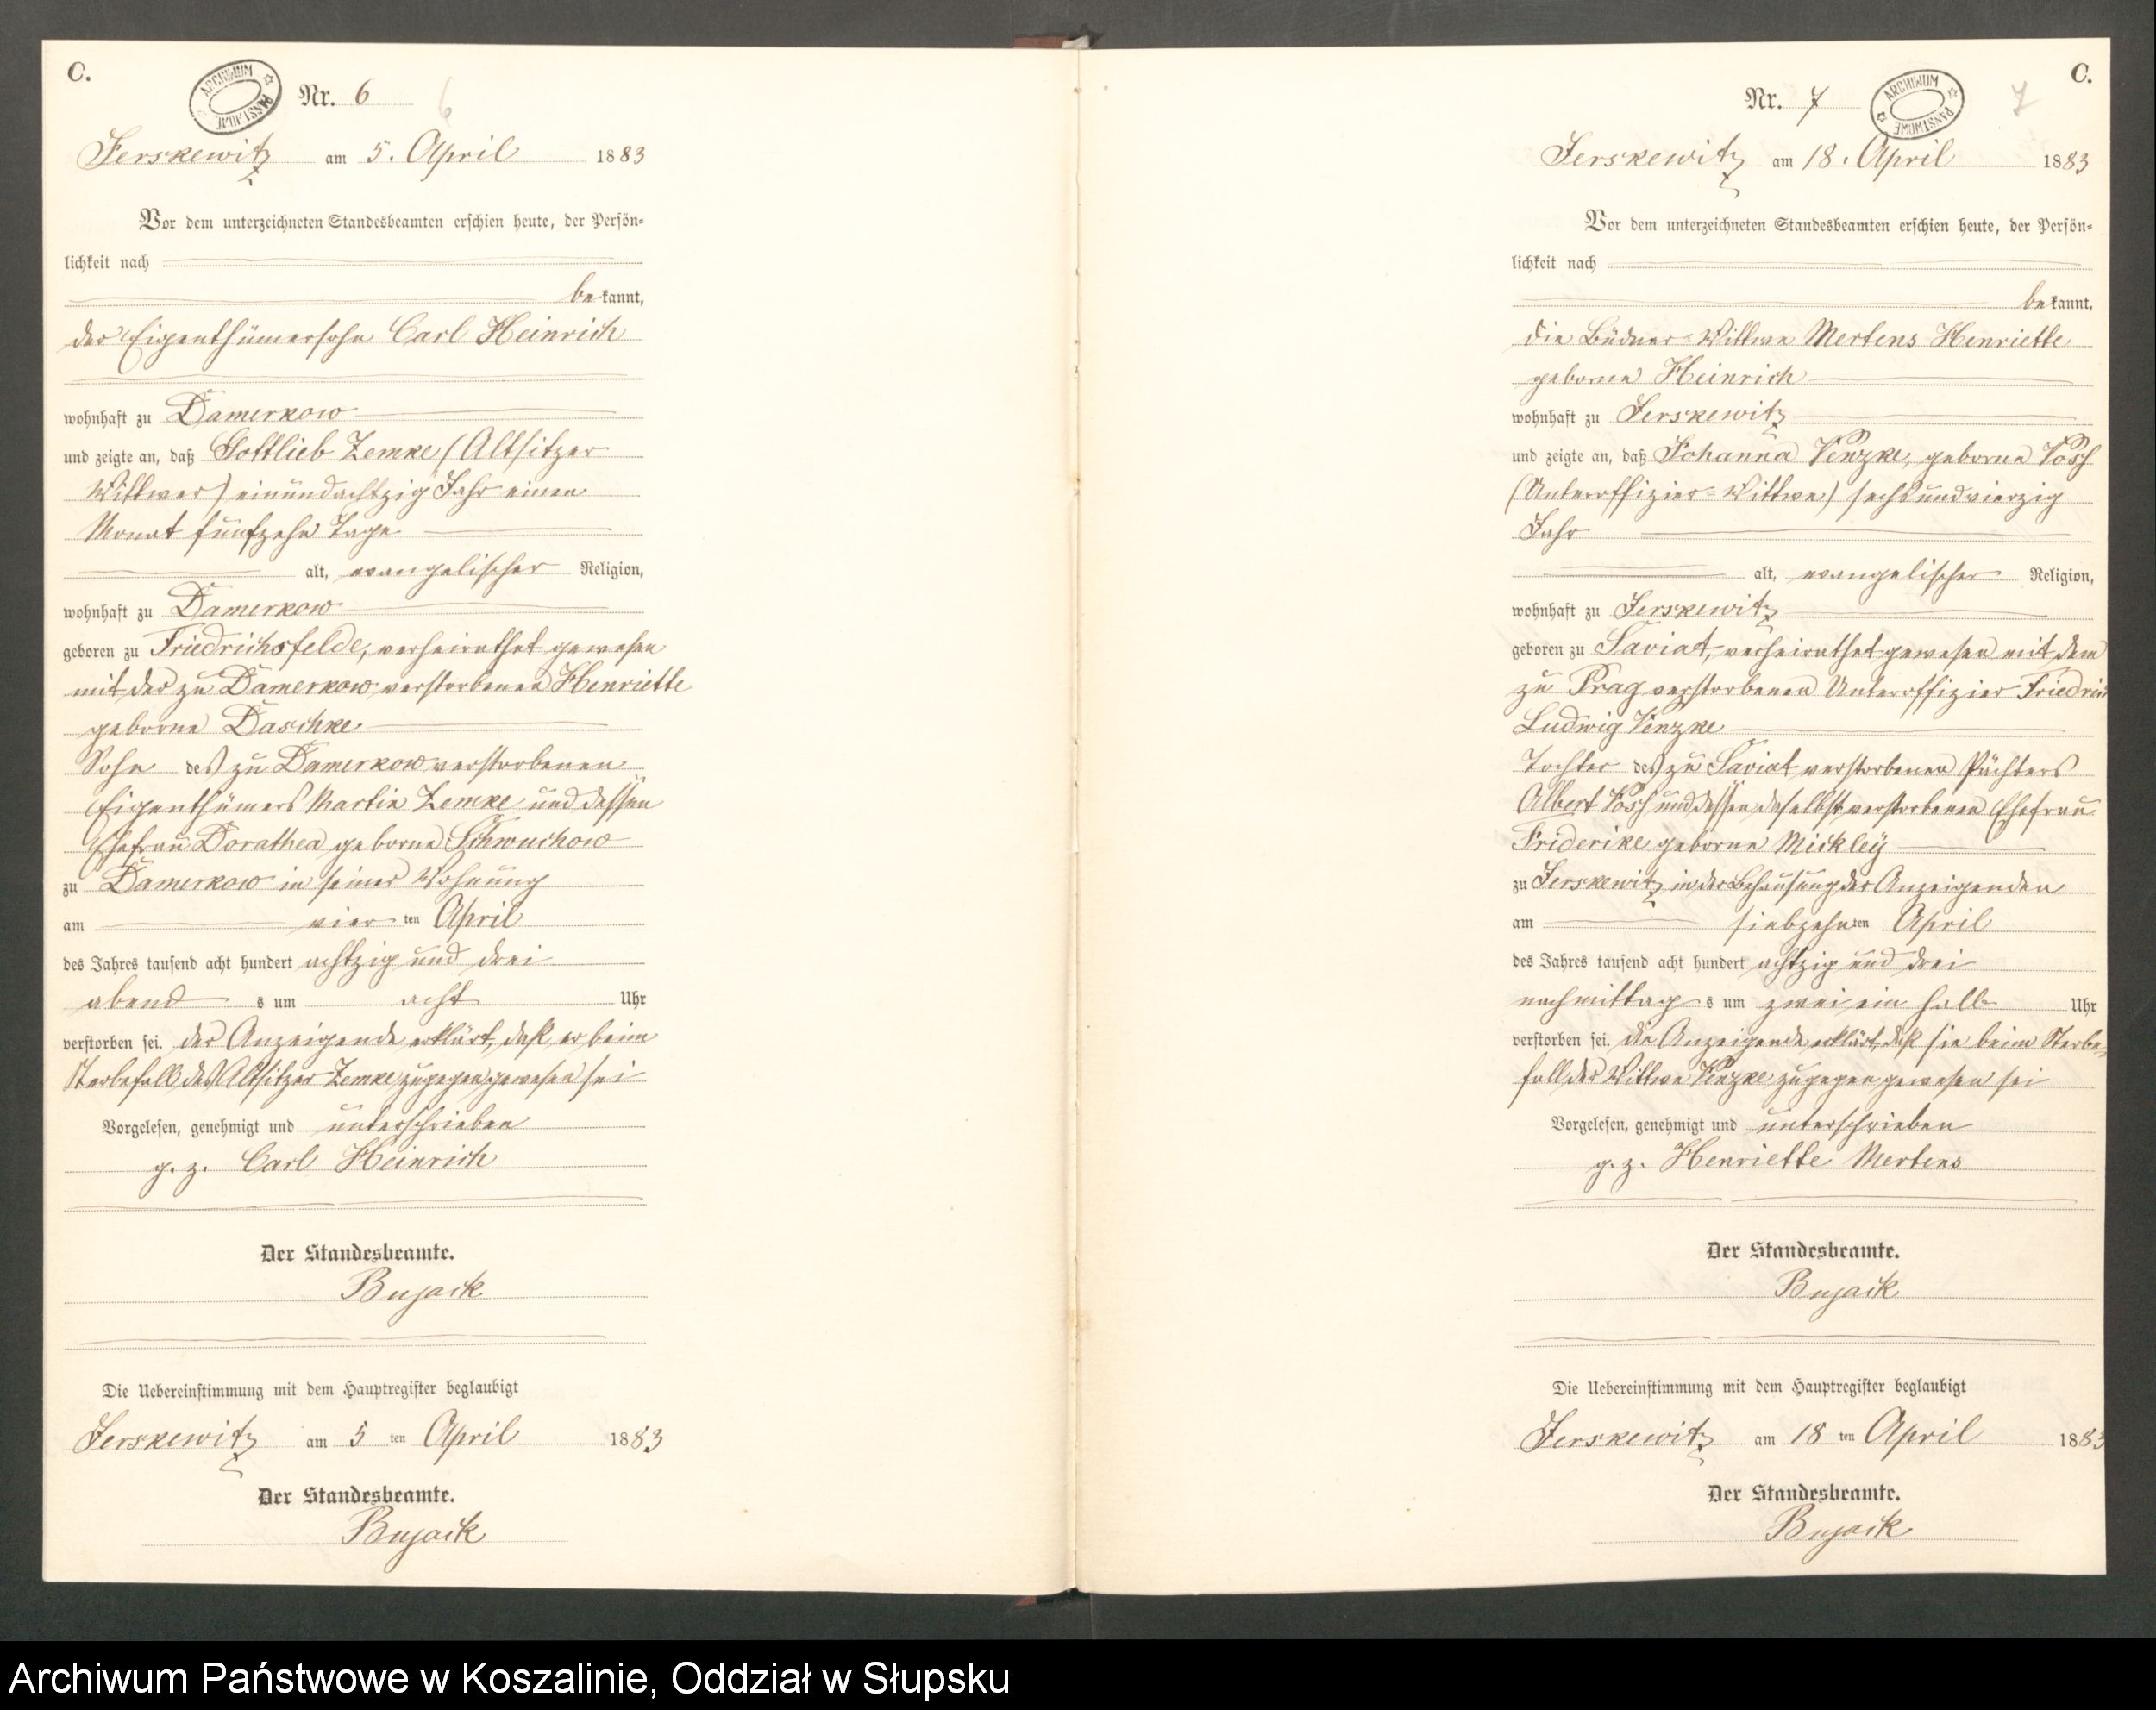 C.
ARCHIWUM PAŃSTWOWE
Nr. 6
6
Jerskewitz am 5. April 1883
Vor dem unterzeichneten Standesbeamten erschien heute, der Persön-
lichkeit nach
bekannt,
der Eigenthümersohn Carl Heinrich
wohnhaft zu Damerkow
und zeigte an, daß Gottlieb Zemke (Altsitzer
Wittwer) einundachtzig Jahr einen
Monat fünfzehn Tage
alt, evangelischer Religion,
wohnhaft zu Damerkow
geboren zu Friedrichsfelde, verheirathet gewesen
mit der zu Damerkow verstorbenen Henriette
geborne Daschke
Sohn des zu Damerkow verstorbenen
Eigenthümers Martin Zemke und dessen
Ehefrau Dorathea geborne Schwuchow
zu Damerkow in seiner Wohnung
am vierten April
des Jahres tausend acht hundert achtzig und drei
abends um acht Uhr
verstorben sei. der Anzeigende erklärt, daß er beim
Sterbefall des Altsitzer Zemke zugegen gewesen sei
Vorgelesen, genehmigt und unterschrieben
g. z. Carl Heinrich
Der Standesbeamte.
Bujack
Die Uebereinstimmung mit dem Hauptregister beglaubigt
Jerskewitz am 5 ten April 1883
Der Standesbeamte.
Bujack
C.
Nr. 7
ARCHIWUM PAŃSTWOWE
7
Jerskewitz am 18. April 1883
Vor dem unterzeichneten Standesbeamten erschien heute, der Persön-
lichkeit nach
bekannt,
die Büdner-Wittwe Mertens Henriette
geborne Heinrich
wohnhaft zu Jerskewitz
und zeigte an, daß Johanna Venzke, geborne Vosch
(Unteroffizier-Wittwe) sechsundvierzig
Jahr
alt, evangelischer Religion,
wohnhaft zu Jerskewitz
geboren zu Saviat, verheirathet gewesen mit dem
zu Prag verstorbenen Unteroffizier Friedrich
Ludwig Venzke
Tochter des zu Saviat verstorbenen Pächters
Albert Vosch und dessen daselbst verstorbenen Ehefrau
Friderike geborne Mickley
zu Jerskewitz in der Behausung der Anzeigenden
am siebzehnten April
des Jahres tausend acht hundert achtzig und drei
nachmittags um zwei ein halb Uhr
verstorben sei. die Anzeigende erklärt, daß sie beim Sterbe-
fall der Wittwe Venzke zugegen gewesen sei
Vorgelesen, genehmigt und unterschrieben
g. z. Henriette Mertens
Der Standesbeamte.
Bujack
Die Uebereinstimmung mit dem Hauptregister beglaubigt
Jerskewitz am 18 ten April 1883
Der Standesbeamte.
Bujack
Archiwum Państwowe w Koszalinie, Oddział w Słupsku